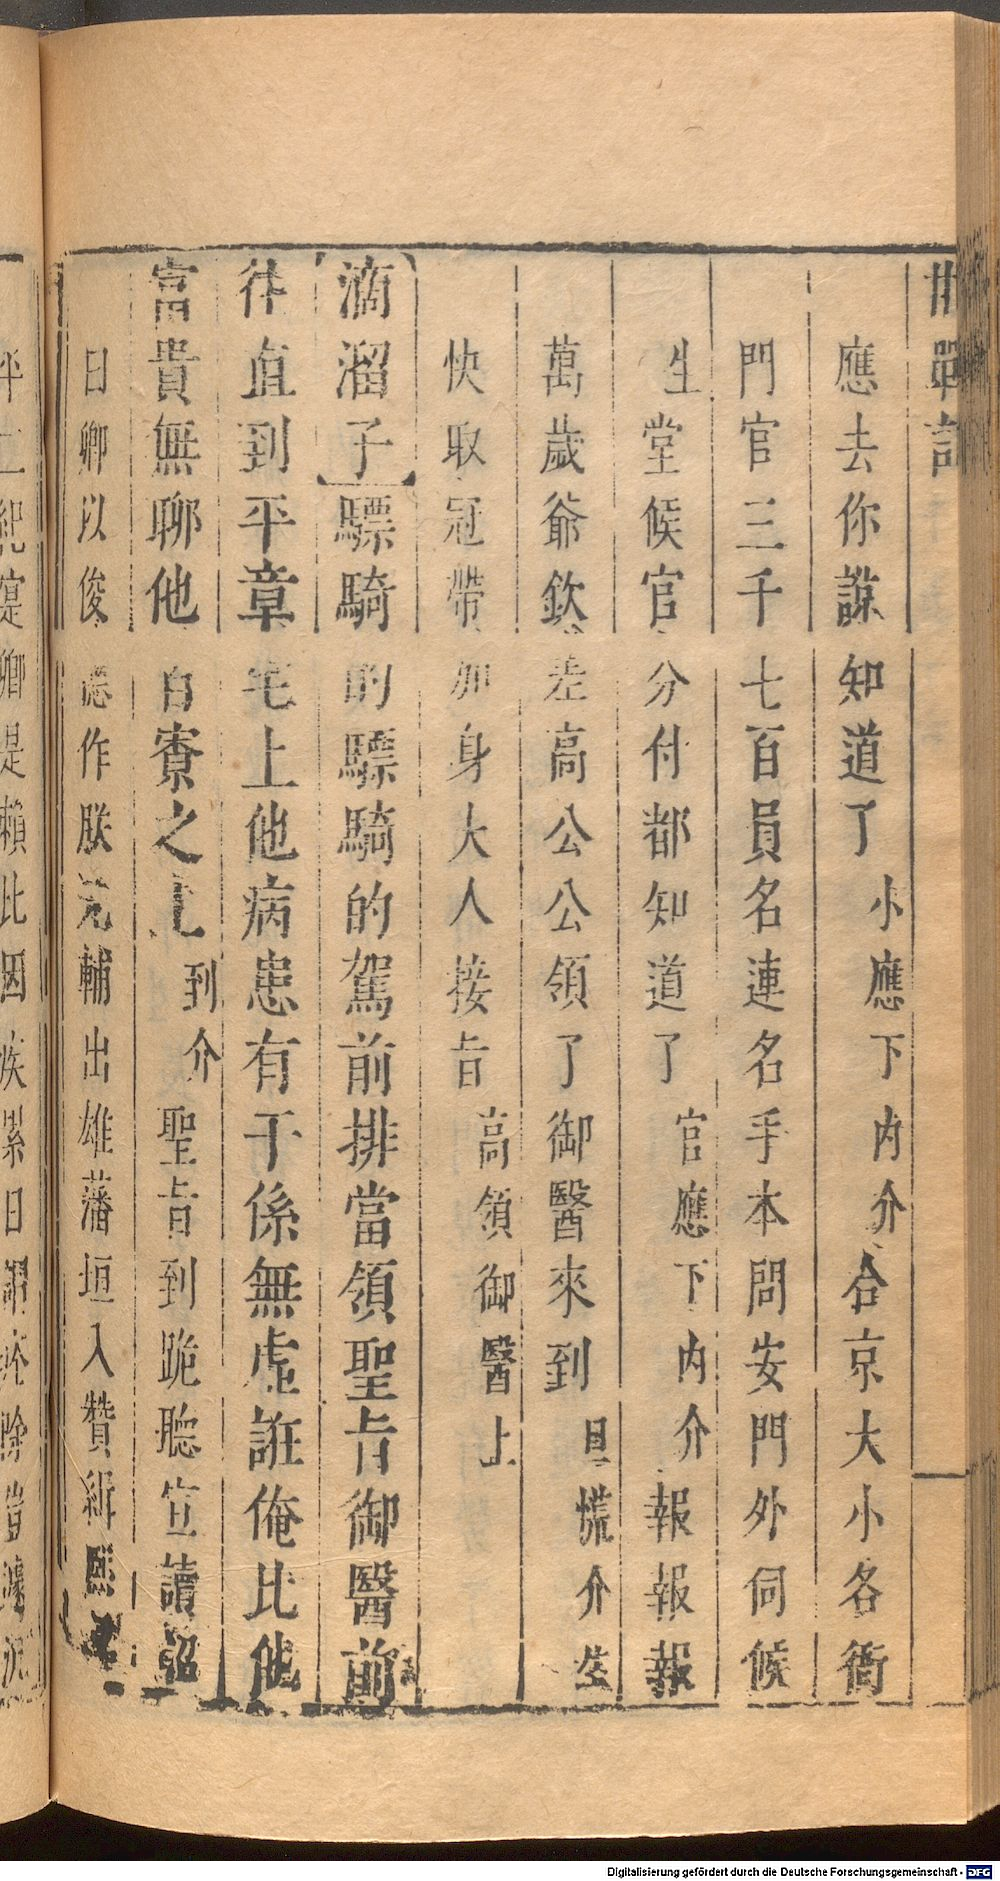 邯鄲記
應去你諒知道了小應下內介合京大小各衙
門官三千七百員名連名手本問安門外伺候
生堂候官分付都知道了官應下內介報報報
萬歲爺欽差高公公領了御醫來到旦慌介生
快取冠帶加身大人接旨高領御醫上
滴溜子驃騎的驃騎的駕前排當領聖旨御醫前
往直到平章宅上他病患有干係無虛誑俺比他
富貴無聊他百寮之上到介聖旨到跪聽宣讀詔
曰卿以俊德作朕元輔出雄藩垣入贊緝熙
平二紀寔卿是賴比因疾累日謂痊除豈遽沉
Digitalisierung gefördert durch die Deutsche Forschungsgemeinschaft - DFG